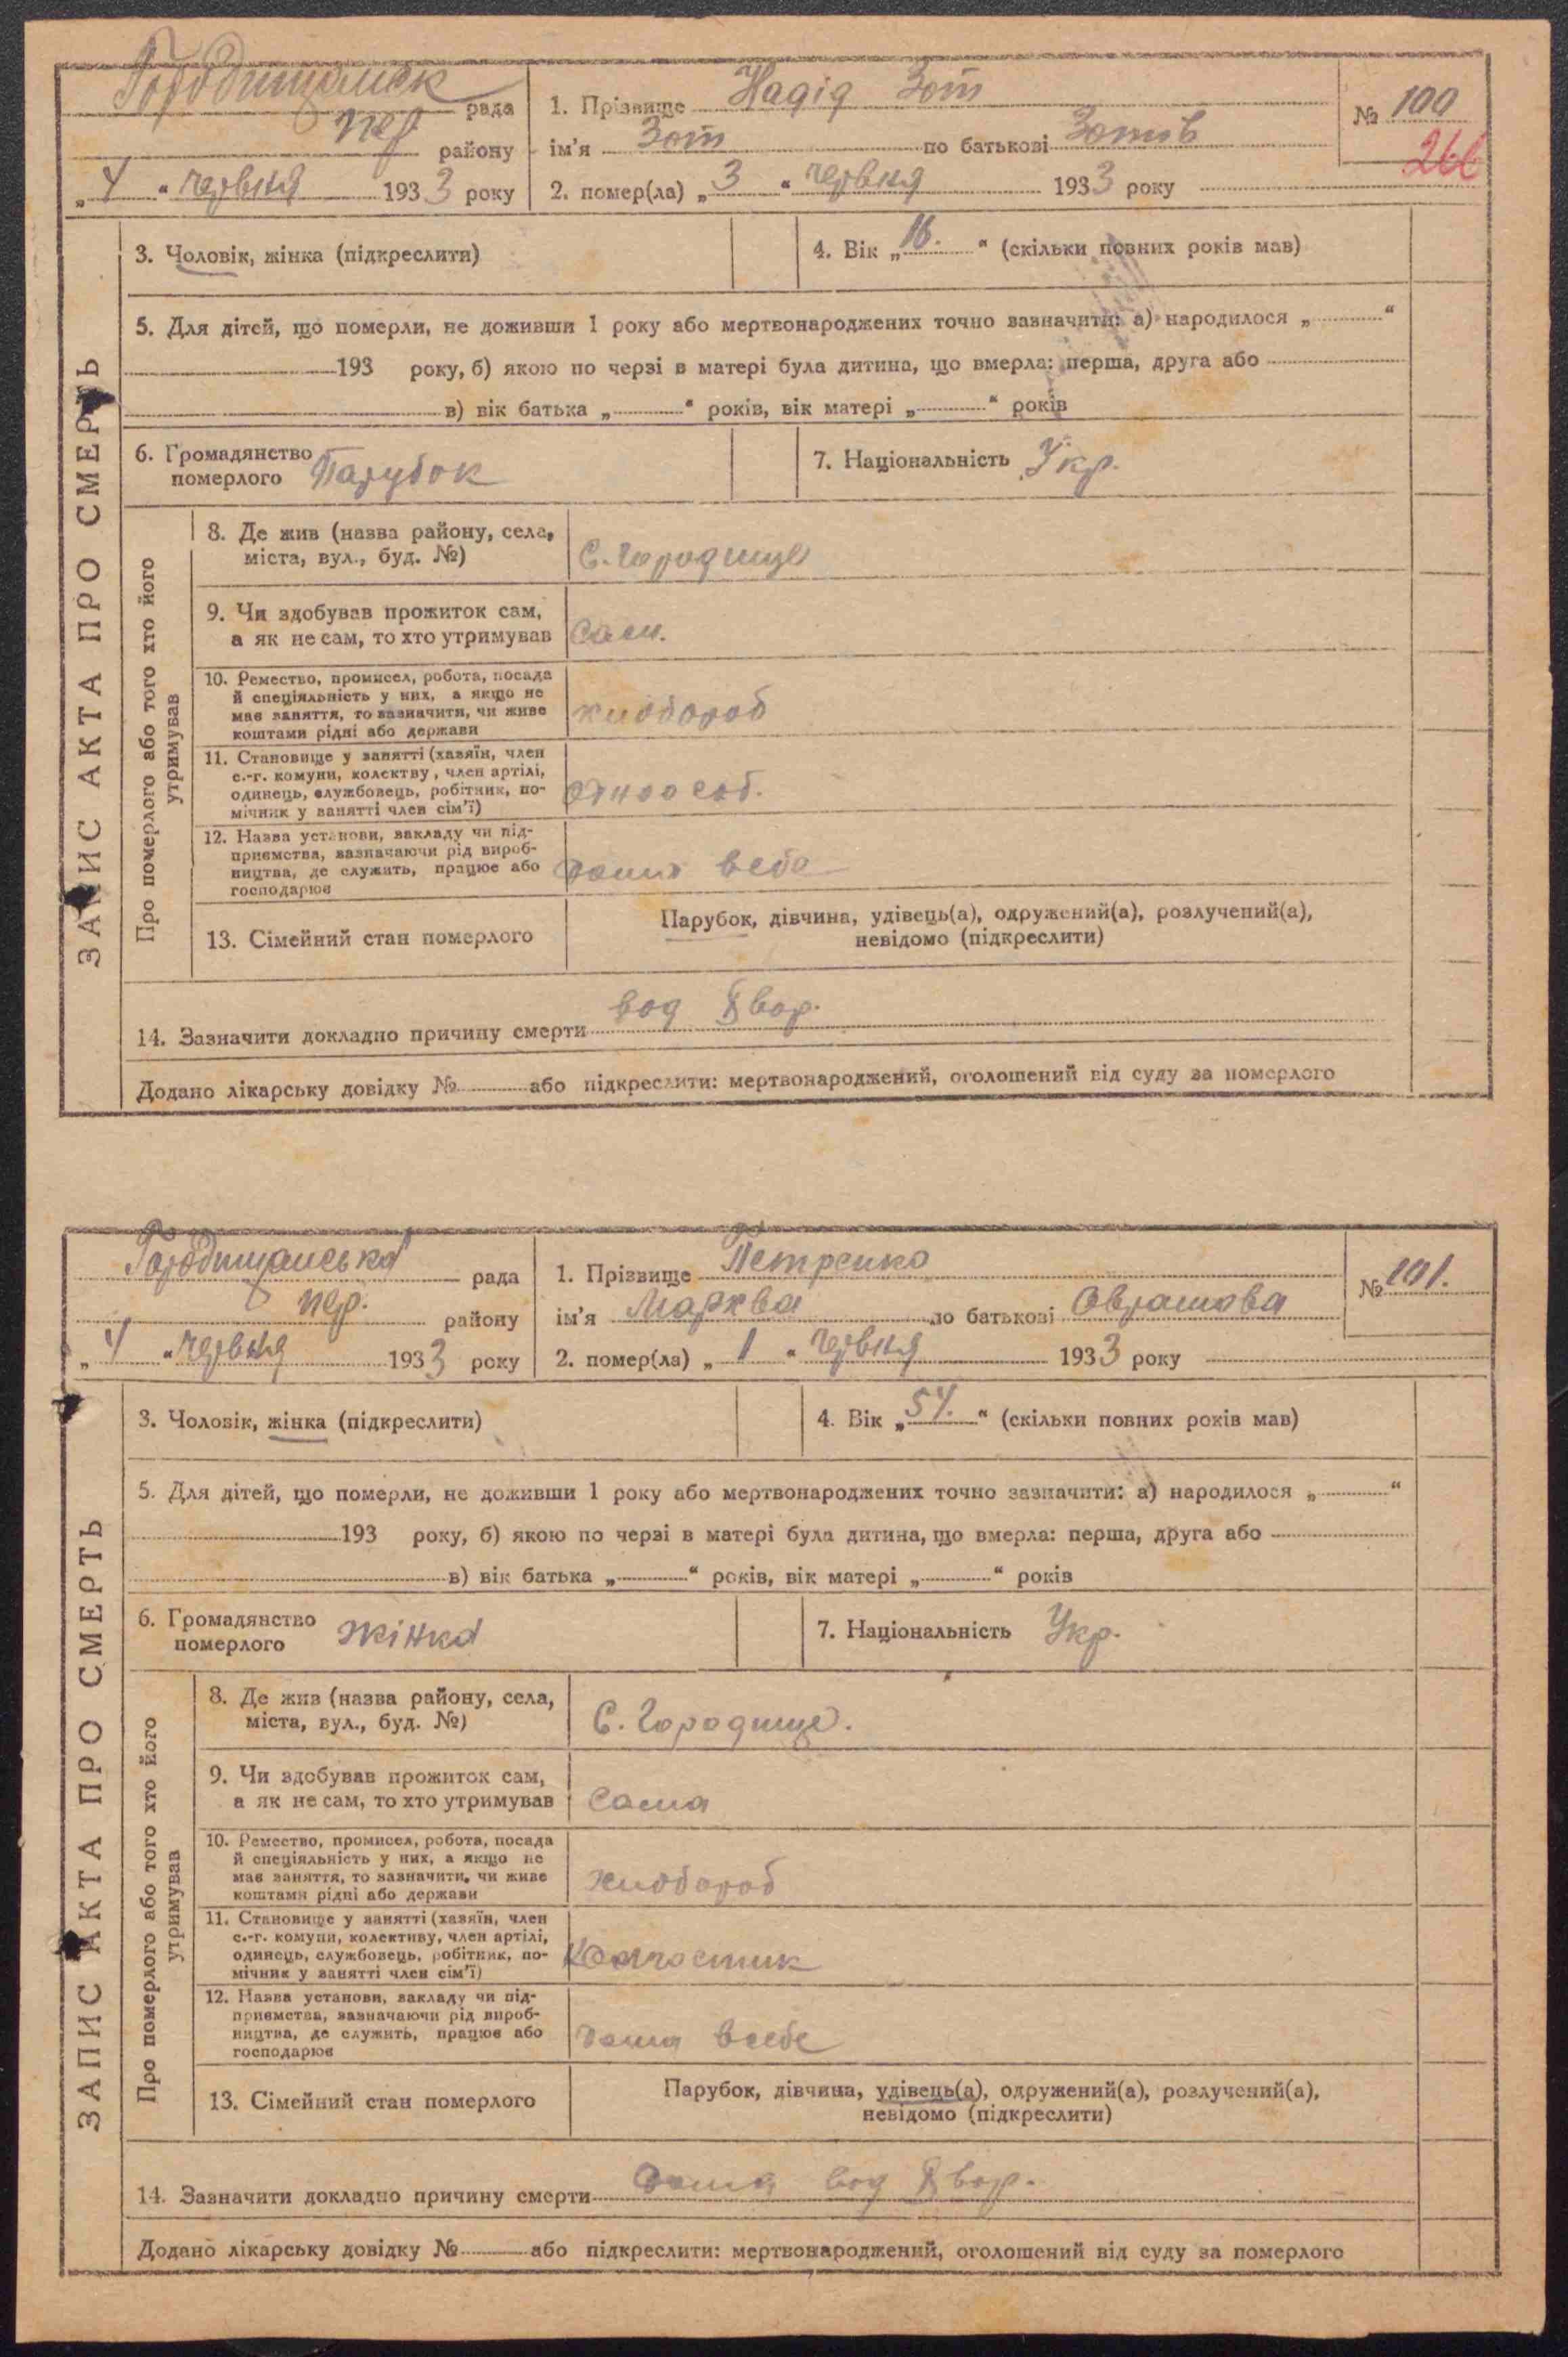 Городищанск рада
пер. району
„ 4 “ червня 1933 року
1. Прізвище Надід Зот
ім'я Зот по батькові Зотів
2. помер(ла) „ 3 “ червня 1933 року
№ 100
266
ЗАПИС АКТА ПРО СМЕРТЬ
3. Чоловік, жінка (підкреслити)
4. Вік „ 16. “ (скільки повних років мав)
5. Для дітей, що померли, не доживши 1 року або мертвонароджених точно зазначити: а) народилося „ “
193 року, б) якою по черзі в матері була дитина, що вмерла: перша, друга або
в) вік батька „ “ років, вік матері „ “ років
6. Громадянство
померлого Парубок
7. Національність Укр.
Про померлого або того хто його
утримував
8. Де жив (назва району, села,
міста, вул., буд. №)
С. Городище
9. Чи здобував прожиток сам,
а як не сам, то хто утримував
Сам.
10. Ремество, промисел, робота, посада
й спеціяльність у них, а якщо не
має заняття, то зазначити, чи живе
коштами рідні або держави
хлібороб
11. Становище у занятті (хазяїн, член
с.-г. комуни, колектву, член артілі,
одинець, службовець, робітник, по-
мічник у занятті член сім'ї)
12. Назва установи, закладу чи під-
приємства, зазначаючи рід вироб-
ництва, де служить, працює або
господарює
13. Сімейний стан померлого
Парубок, дівчина, удівець(а), одружений(а), розлучений(а),
невідомо (підкреслити)
14. Зазначити докладно причину смерти
Додано лікарську довідку № або підкреслити: мертвонароджений, оголошений від суду за померлого
Городищанська рада
пер. району
„ 4 “ червня 1933 року
1. Прізвище Петренко
ім'я Марква по батькові Оврамова
2. помер(ла) „ 1 “ червня 1933 року
№ 101.
ЗАПИС АКТА ПРО СМЕРТЬ
3. Чоловік, жінка (підкреслити)
4. Вік „ 54. “ (скільки повних років мав)
5. Для дітей, що померли, не доживши 1 року або мертвонароджених точно зазначити: а) народилося „ “
193 року, б) якою по черзі в матері була дитина, що вмерла: перша, друга або
в) вік батька „ “ років, вік матері „ “ років
6. Громадянство
померлого жінка
7. Національність Укр.
Про померлого або того хто його
утримував
8. Де жив (назва району, села,
міста, вул., буд. №)
С. Городище.
9. Чи здобував прожиток сам,
а як не сам, то хто утримував
Сама
10. Ремество, промисел, робота, посада
й спеціяльність у них, а якщо не
має заняття, то зазначити, чи живе
коштами рідні або держави
хлібороб
11. Становище у занятті (хазяїн, член
с.-г. комуни, колективу, член артілі,
одинець, службовець, робітник, по-
мічник у занятті член сім'ї)
12. Назва установи, закладу чи під-
приємства, зазначаючи рід вироб-
ництва, де служить, працює або
господарює
13. Сімейний стан померлого
Парубок, дівчина, удівець(а), одружений(а), розлучений(а),
невідомо (підкреслити)
14. Зазначити докладно причину смерти
Додано лікарську довідку № або підкреслити: мертвонароджений, оголошений від суду за померлого